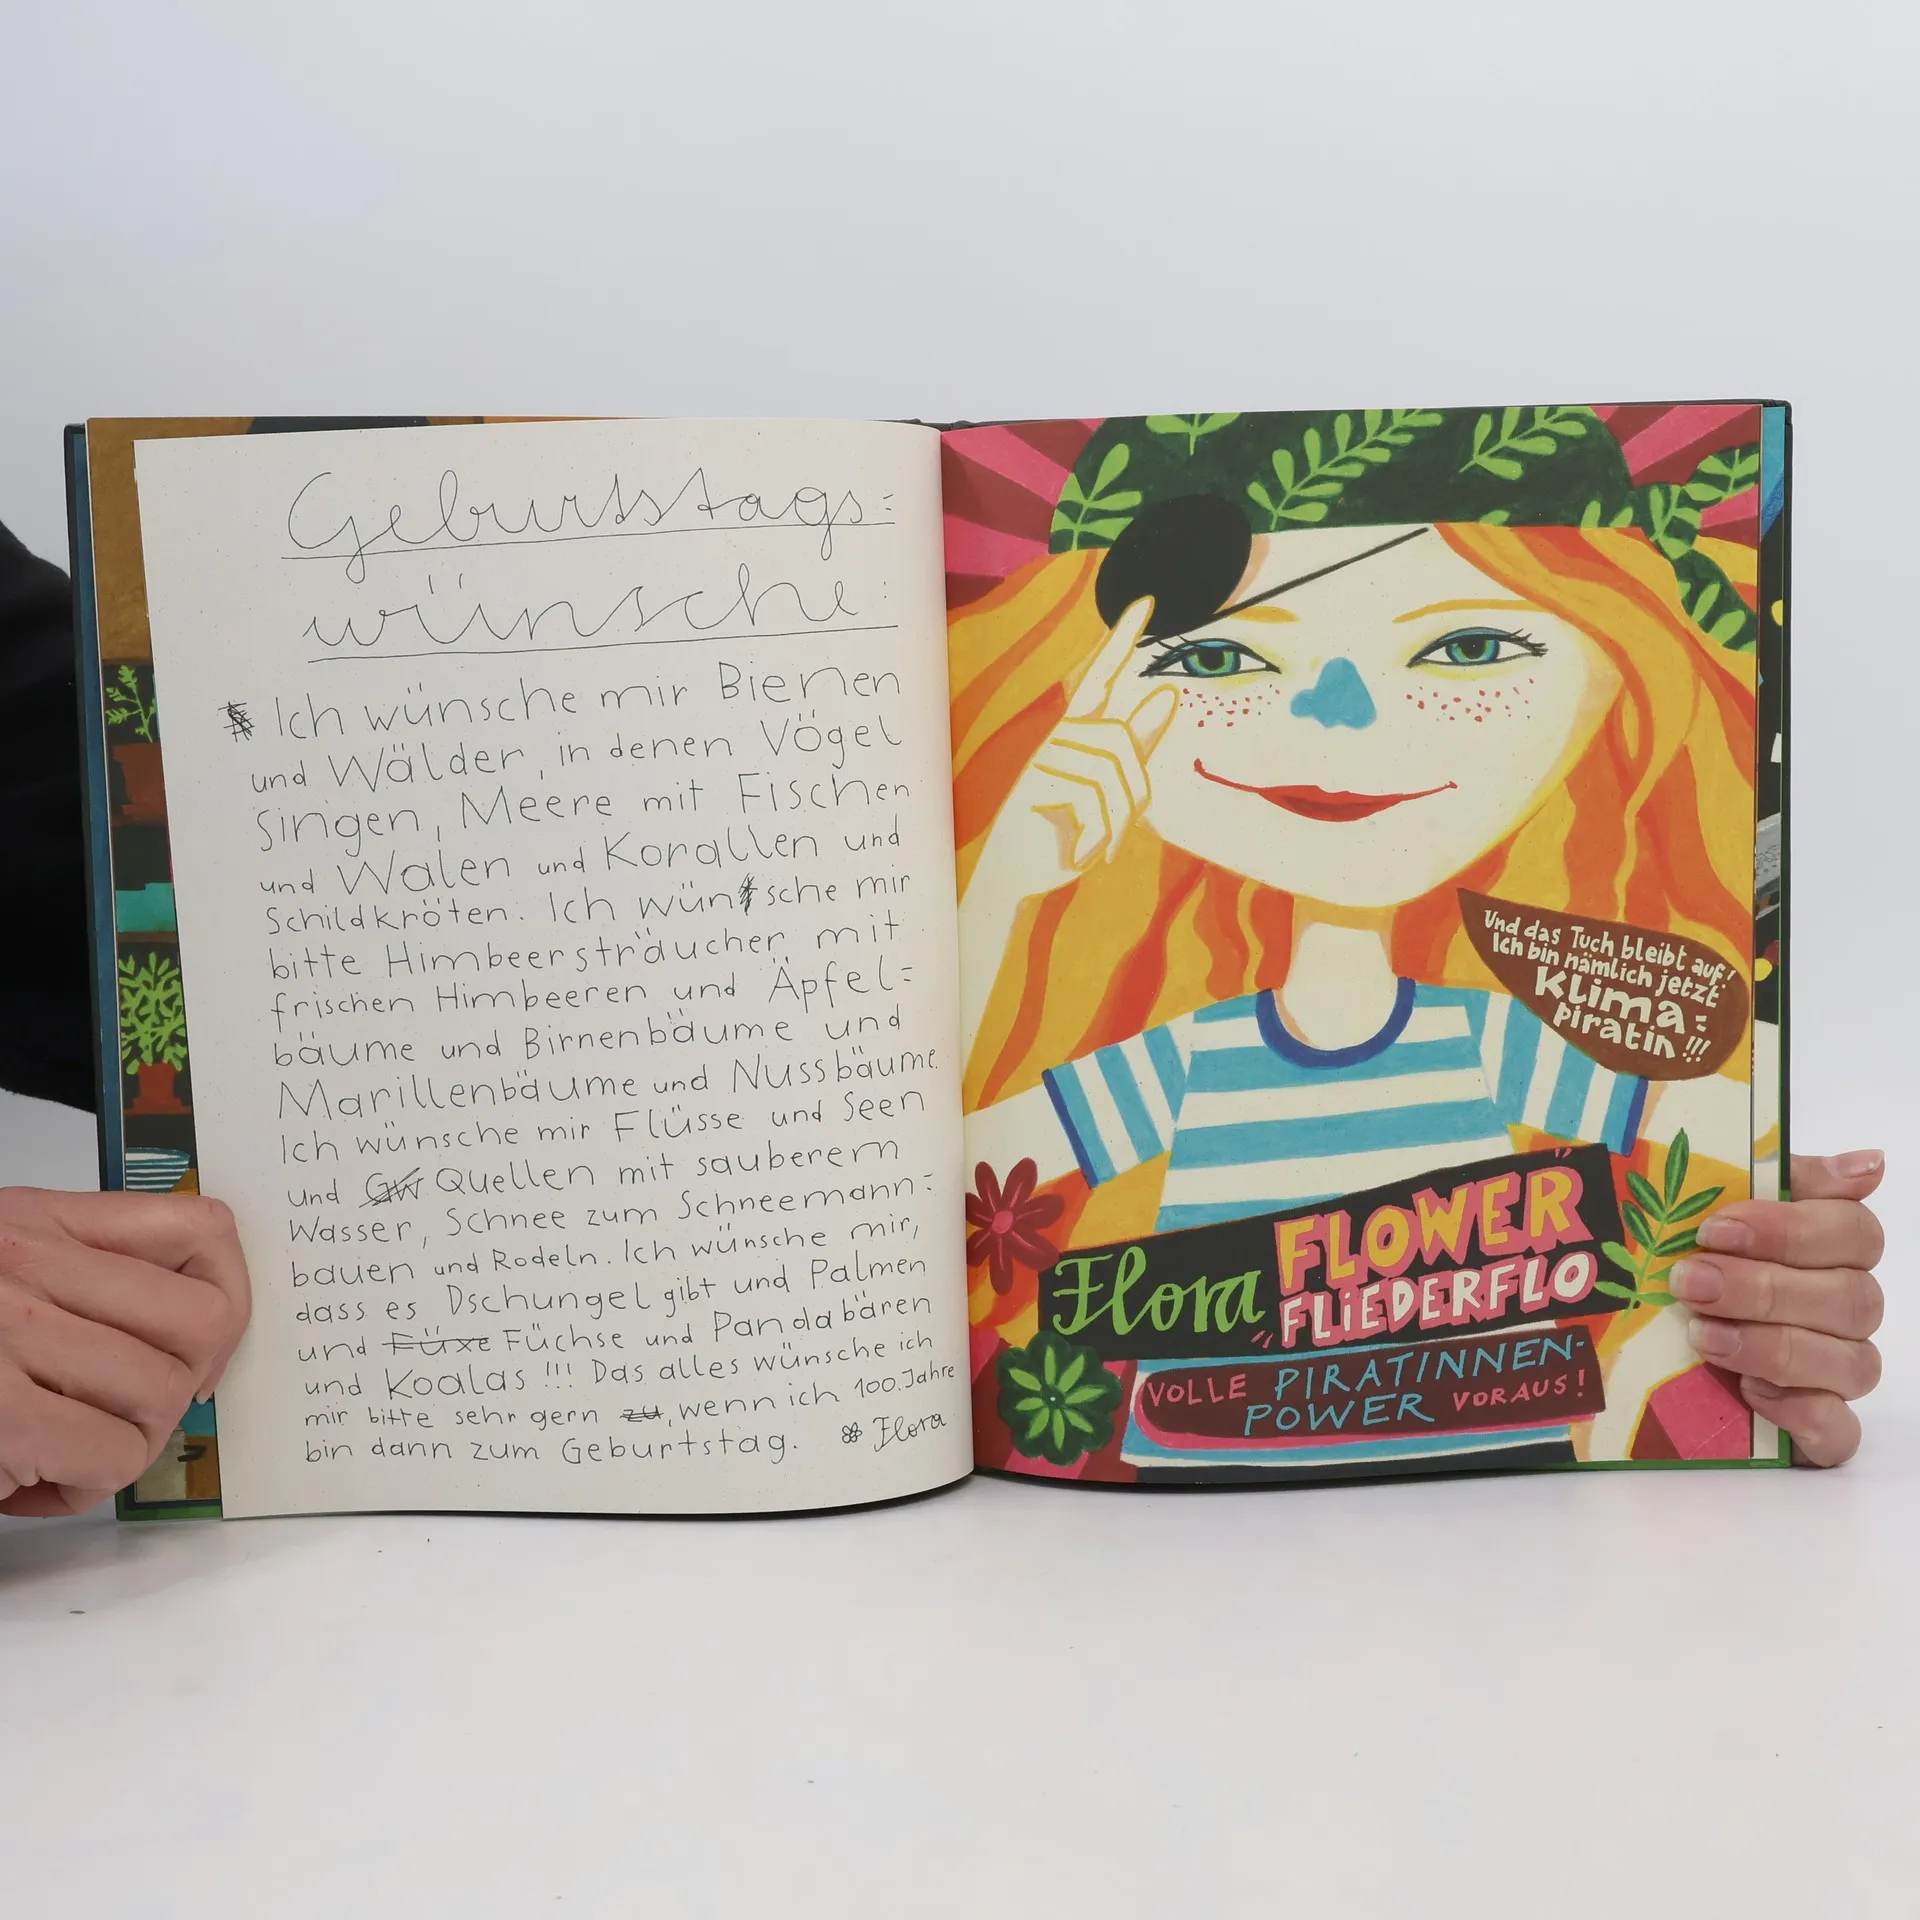 Geburtstags=
wünsche:
Ich wünsche mir Bienen
und Wälder, in denen Vögel
singen, Meere mit Fischen
und Walen und Korallen und
Schildkröten. Ich wünsche mir
bitte Himbeersträucher mit
frischen Himbeeren und Äpfel=
bäume und Birnenbäume und
Marillenbäume und Nussbäume.
Ich wünsche mir Flüsse und Seen
und GW Quellen mit sauberem
Wasser, Schnee zum Schneemann=
bauen und Rodeln. Ich wünsche mir,
dass es Dschungel gibt und Palmen
und Füxe Füchse und Pandabären
und Koalas!!! Das alles wünsche ich
mir bitte sehr gern zu, wenn ich 100 Jahre
bin dann zum Geburtstag. Flora
Und das Tuch bleibt auf!
Ich bin nämlich jetzt
Klima=
piratin!!!
Flora "FLOWER"
FLiEDERFLO
VOLLE PIRATINNEN-
POWER VORAUS!